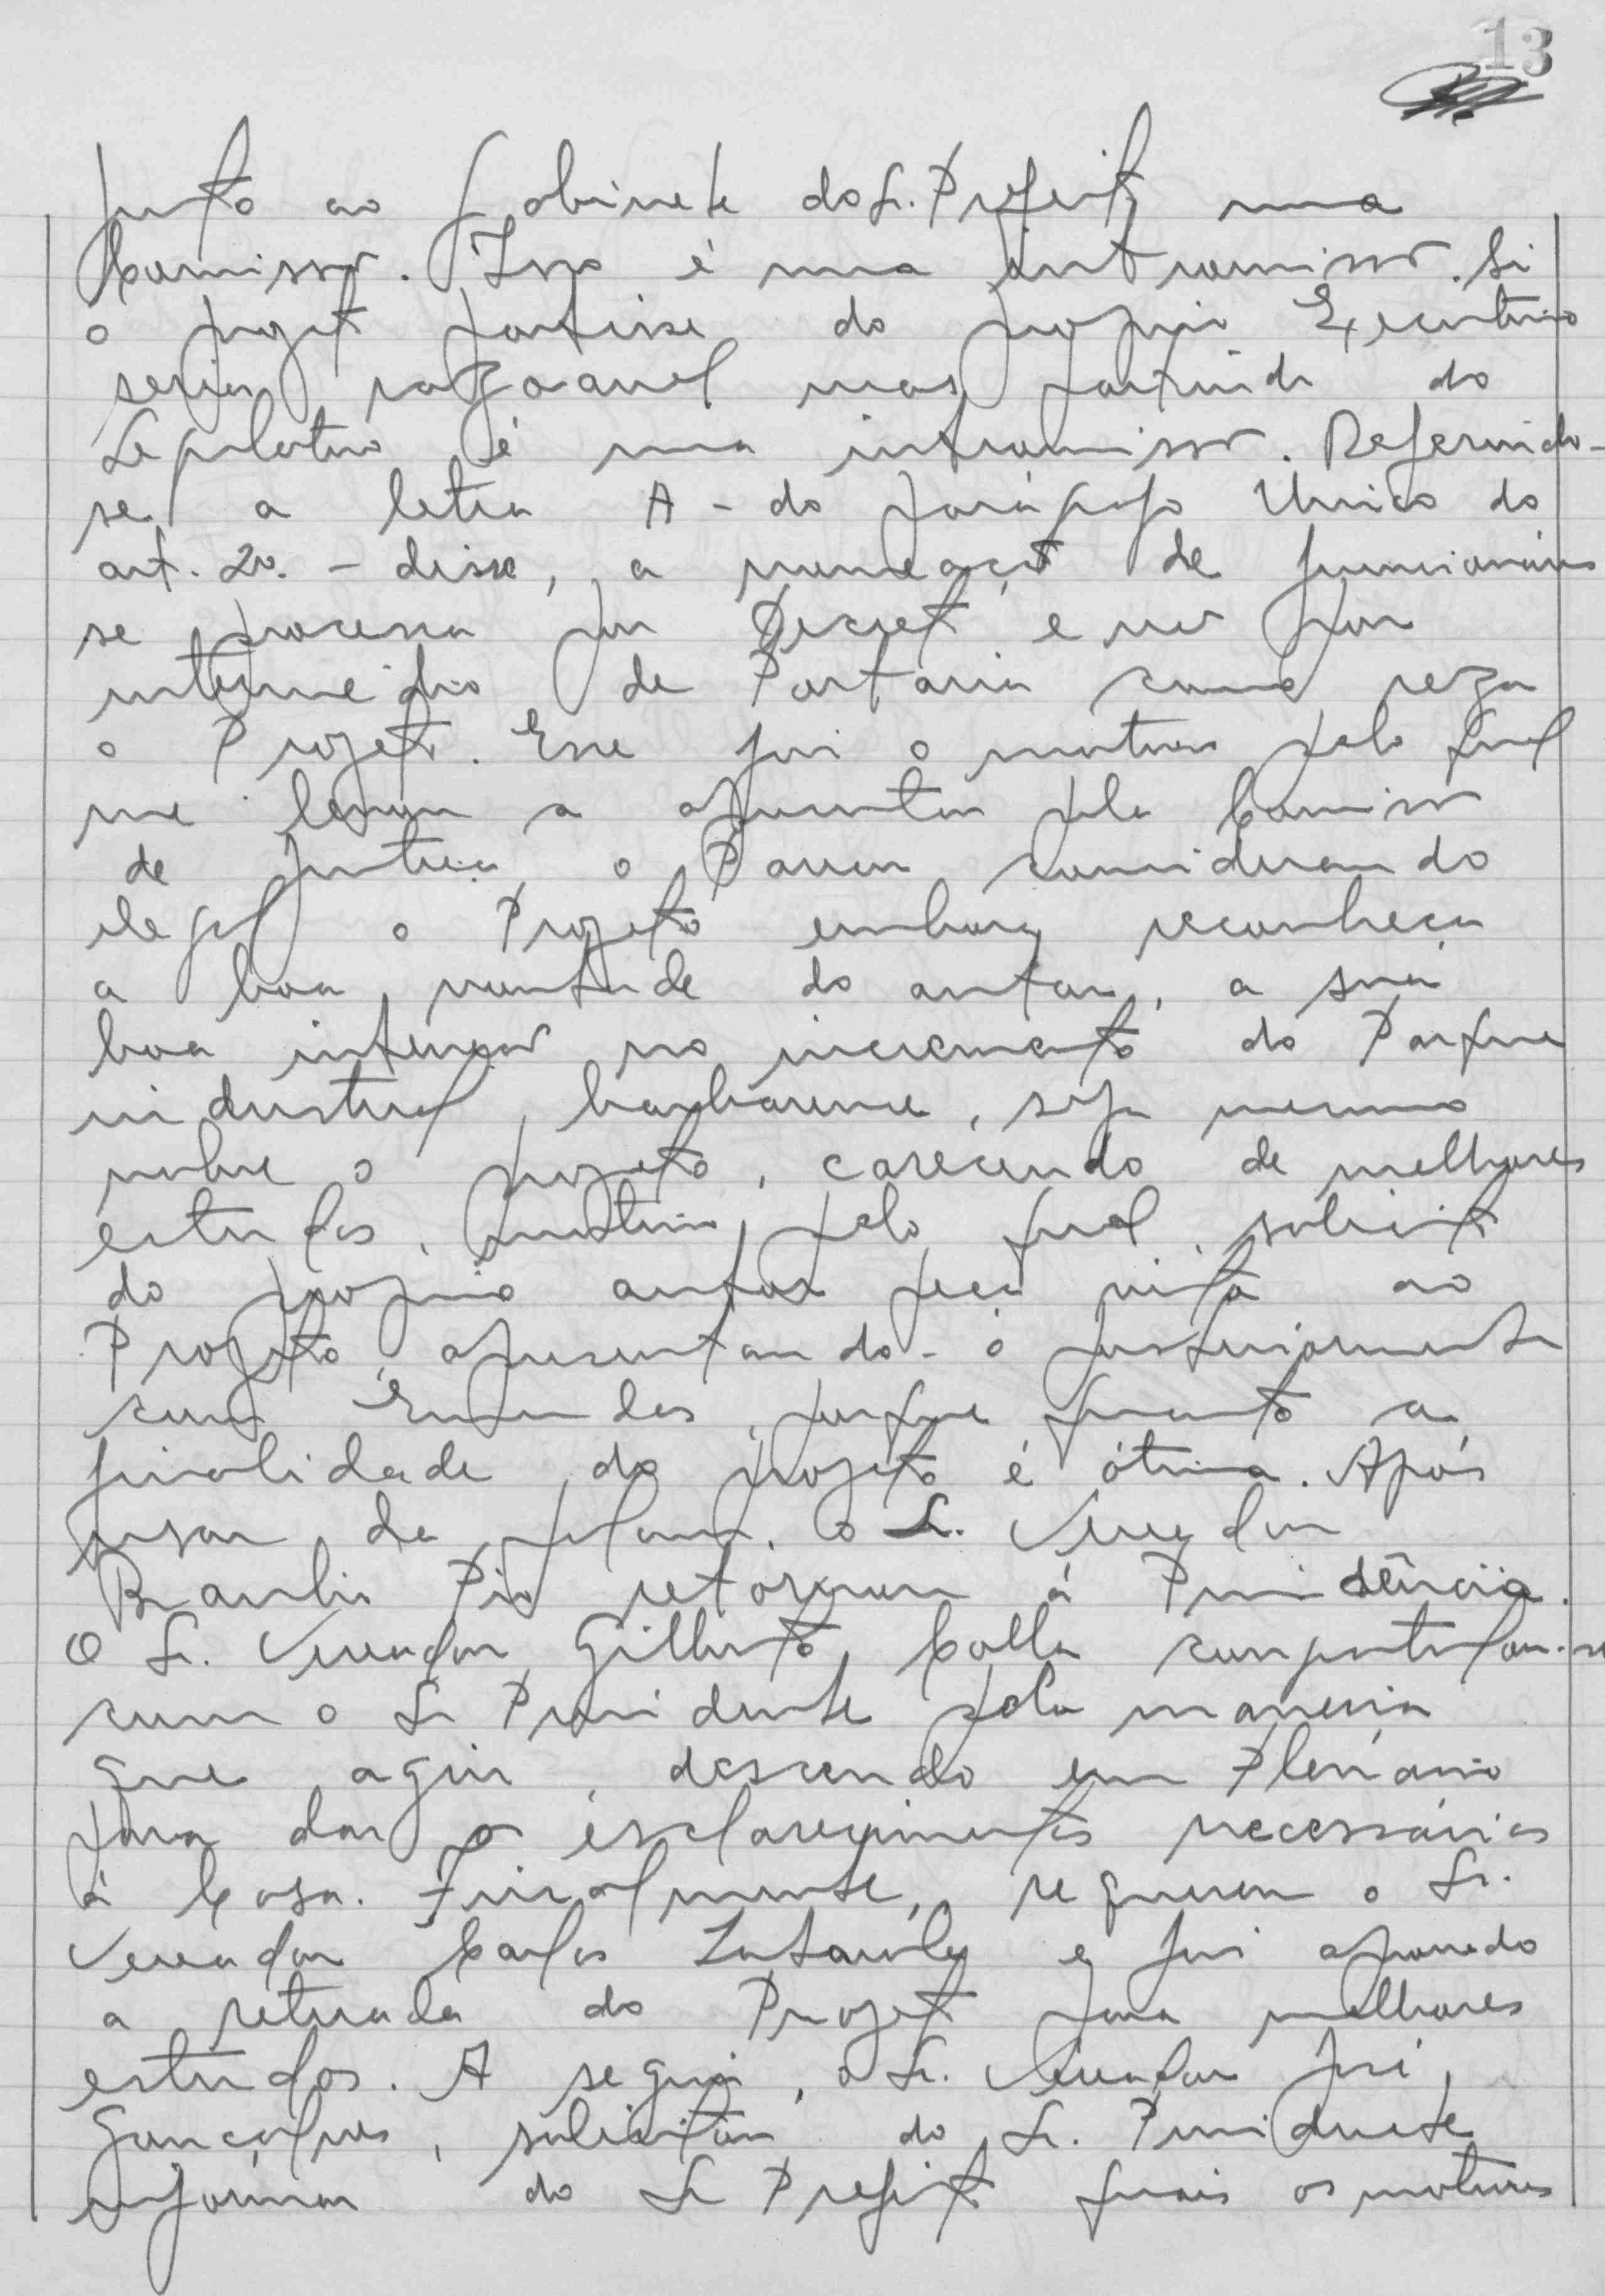 13
junto ao Gabinete do Sr. Prefeito uma
Comissão. Isso é uma intromissão. Si
o projeto partisse do proprio Executivo
seria razoavel mas partindo do
Legislativo é uma intromissão. Referindo-
se a letra A - do parágrafo Unico do
art. 2º. - disse, a nomeação de funcionários
se processa por Decreto e não por
intermédio de Portaria como reza
o Projeto. Esse foi o motivo pelo qual
me levou a apresentar pela Comissão
de Justiça o Parecer considerando
ilegal o Projeto embora reconheça
a boa vontade do autor, a sua
boa intenção no incremento do Parque
industrial barbarense, seja mesmo
nobre o projeto, carecendo de melhores
estudos, motivo pelo qual, solicito
do proprio autor peça vista ao
Projeto, apresentando-o posteriormente
com Emendas, porque quanto a
finalidade do projeto é ótima. Após
usar da palavra, o Sr. Vereador
Braulio Pio retornou á Presidência.
O Sr. Vereador Gilberto Colla congratulou-se
com o Sr Presidente pela maneira
que agiu, descendo em Plenário
para dar o esclarecimentos necessários
á Casa. Finalmente, requereu o Sr.
Vereador Carlos e foi aprovado
a retirada do Projeto para melhores
estudos. A seguir, o Sr. Vereador José
Gonçalves, solicitou do Sr. Presidente
informar do Sr Prefeito quais os motivos